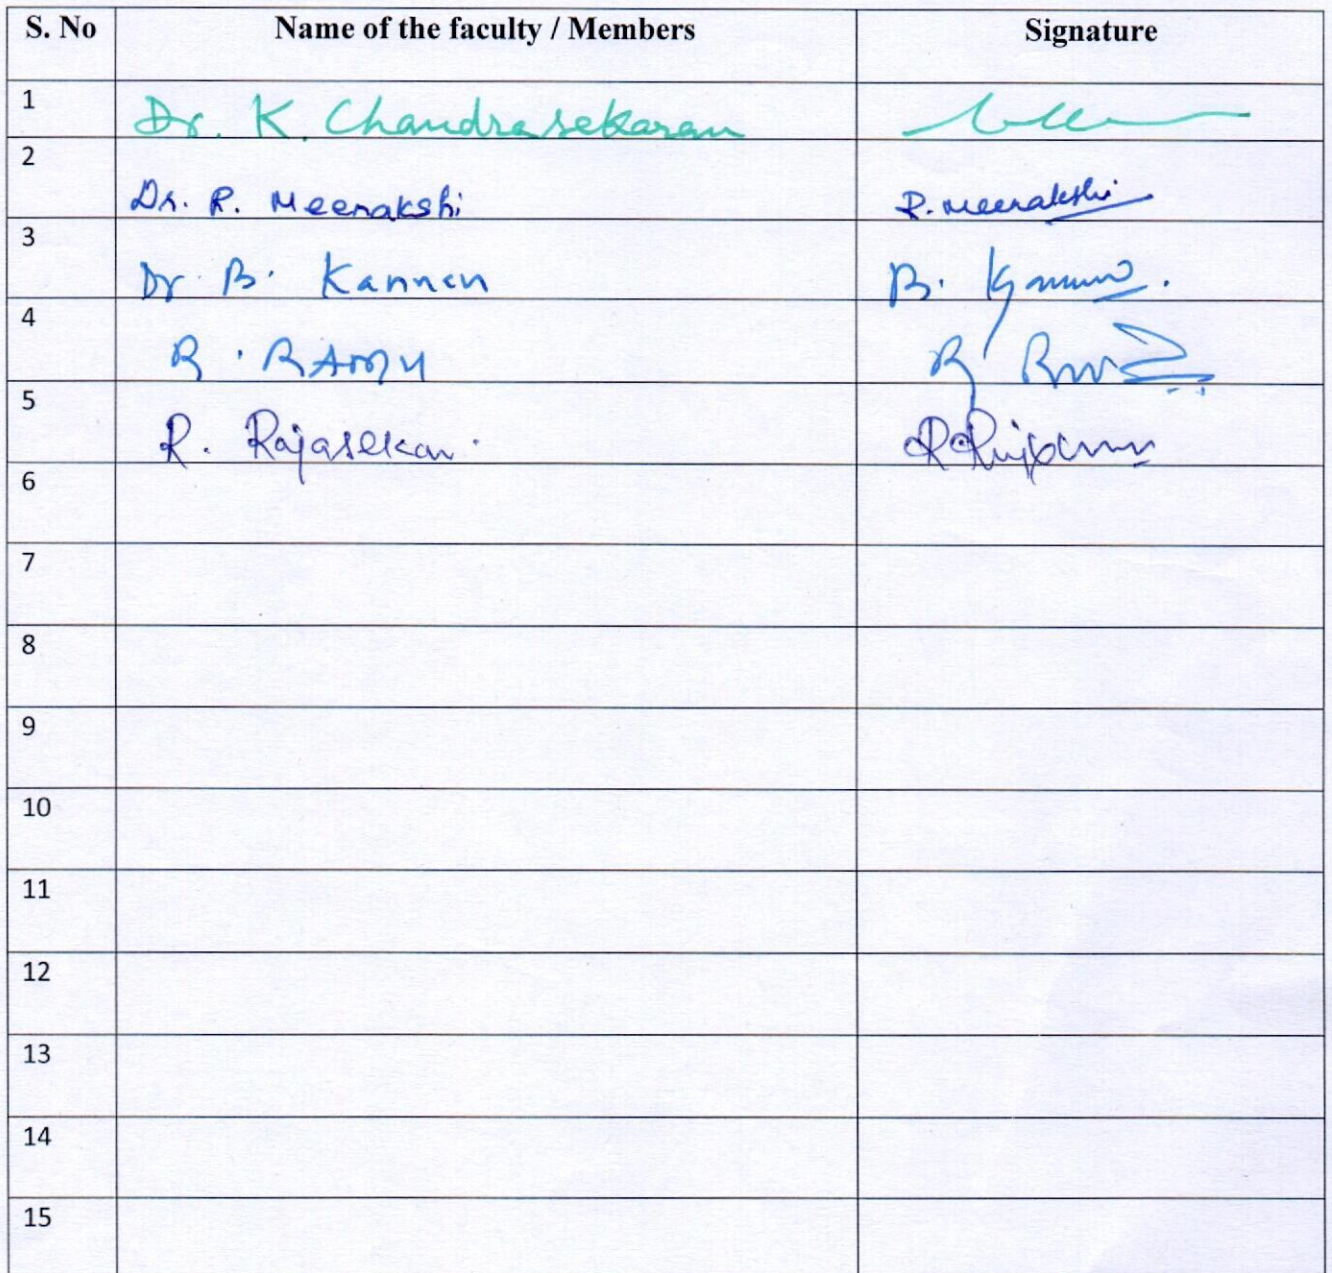 S. No Name of the faculty / Members Signature
1 Dr. K. Chandrasekaran
2 Dr. R. Meenakshi R. Meenakshi
3 Dr. B. Kannan B.
4 R. RAMU R
5 R. Rajasekar R
6
7
8
9
10
11
12
13
14
15